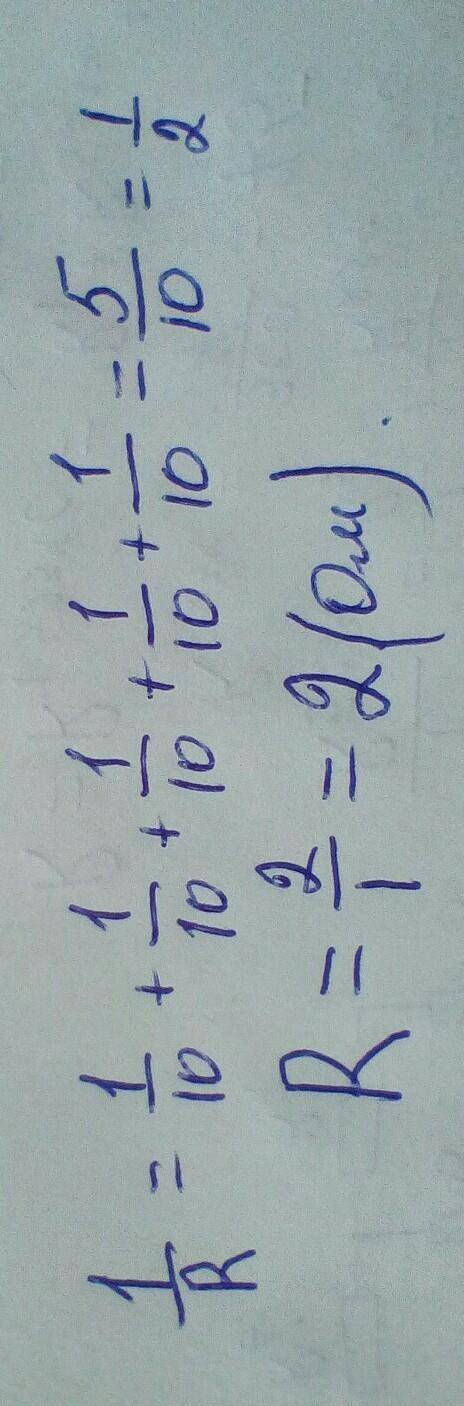 1/R = 1/10 + 1/10 + 1/10 + 1/10 + 1/10 = 5/10 = 1/2
R = 2/1 = 2 (Ом).